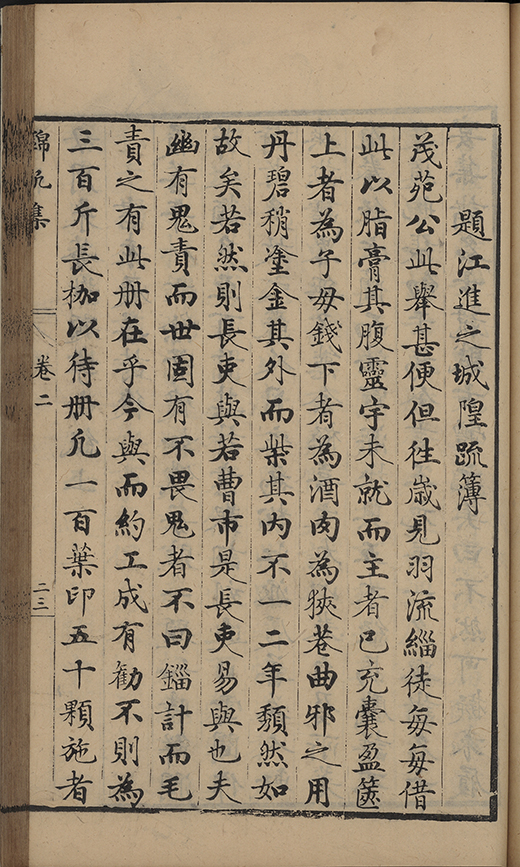 題江進之城隍疏簿
茂苑公此舉甚便但徃歲見羽流緇徒每每借
此以脂膏其腹靈宇未就而主者已充囊盈篋
上者為子母錢下者為酒肉為狹巷曲邪之用
丹碧稍塗金其外而柴其内不一二年頽然如
故矣若然則長吏與若曹市是長吏易與也夫
幽有鬼責而世固有不畏鬼者不曰錙計而毛
責之有此册在乎今與而約工成有勸不則為
三百斤長枷以待册凢一百葉印五十顆施者
錦帆集
卷二
二三